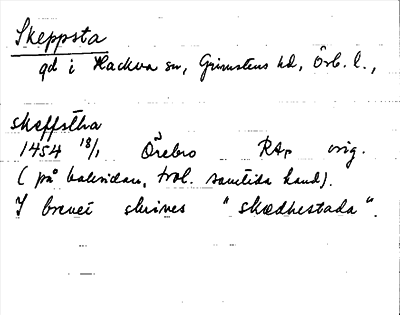 Skeppsta
gd i Hackva sn, Grimstens hd, Örb. l.,
skeffstha
1454 18/1 Örebro RAp orig.
(på baksidan, trol. samtida hand).
I brevet skrives "skædhestada".